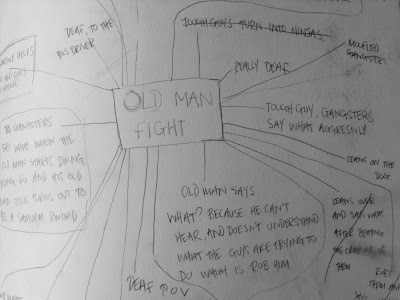 DEAF, TO THE
BUS DRIVER
TOUGH GUYS TURN INTO NINJAS.
REALLY DEAF
MUFFLED
GANGSTERS
OLD MAN
FIGHT
TOUGH GUY, GANGSTERS
SAY WHAT AGGRESIVLY
LEANS ON THE
DOOR
GANGSTERS
SAY WHAT WHEN THE
OLD MAN STARTS DOING
KUNG FU AND HIS OLD
MAN STICK TURNS OUT TO
BE A SAMURAI SWORD
OLD MAN SAYS
WHAT? BECAUSE HE CAN'T
HEAR, AND DOESN'T UNDERSTAND
WHAT THE GUYS ARE TRYING TO
DO WHICH IS ROB HIM
LEANS OVER
AND SAYS WHAT
AFTER BEATING
THE CRAP OUT OF
THEM
ROBS
THEM AND
SAYS
DEAF P.O.V